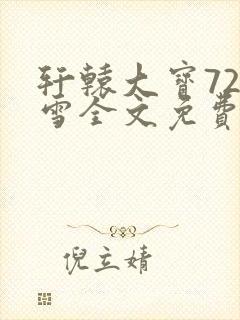 轩辕大宝72
雪全文免费
倪立婧